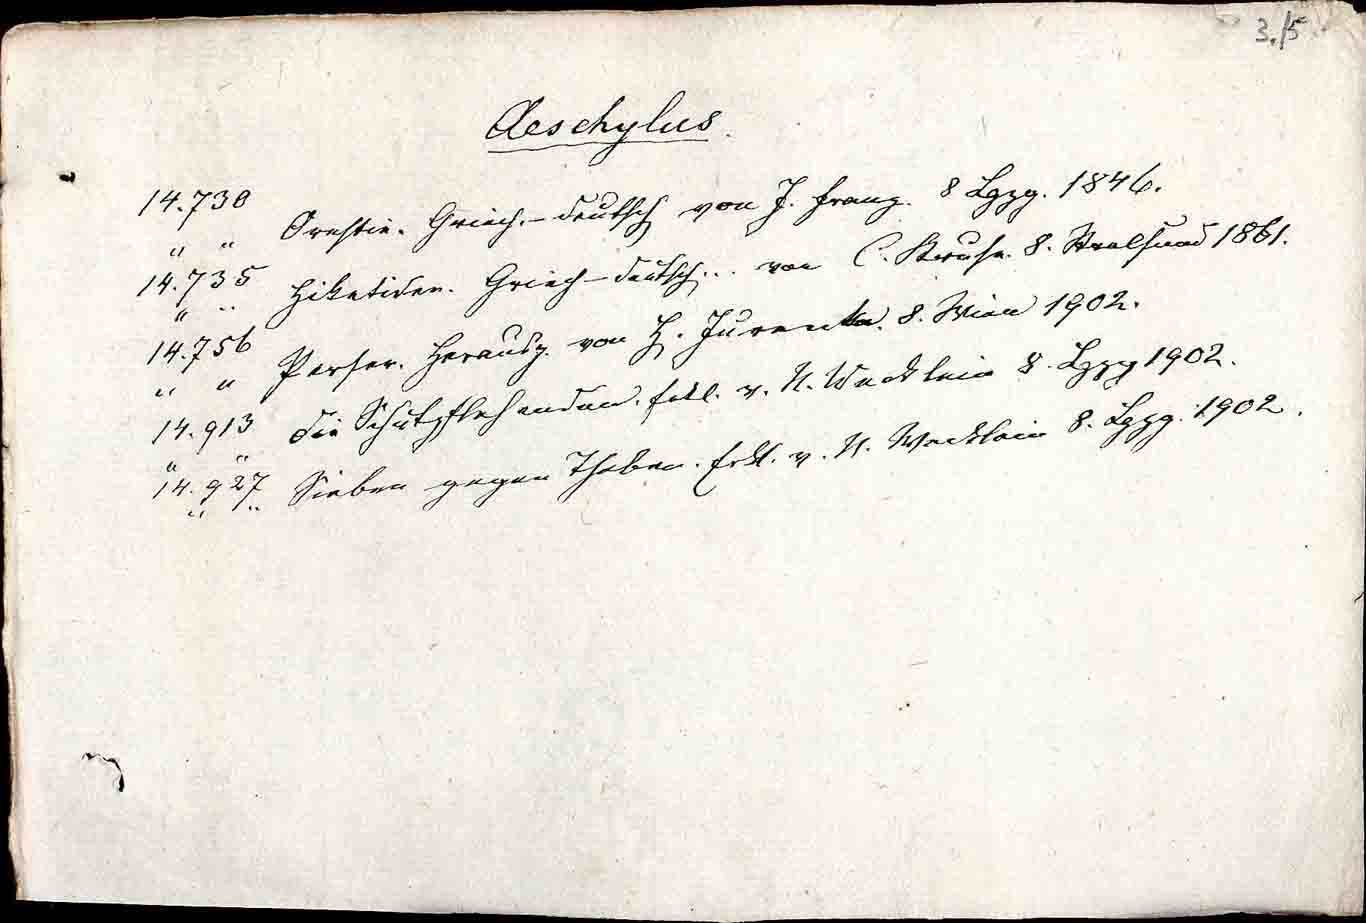 3./5
Aeschylus.
14.730
" " Orestie. Griech.-deutsch von J. Franz. 8 Lpzg. 1846.
14.735
" " Hiketiden. Griech-deutsch... von C. Kruse. 8. Stralsund 1861.
14.756
" " Perser. Herausg. von H. Jurenka. 8. Wien 1902.
14.913
" " Die Schutzflehenden. Erkl. v. N. Wecklein 8. Lpzg 1902.
14.927
" " Sieben gegen Theben. Erkl. v. N. Wecklein 8. Lpzg. 1902.